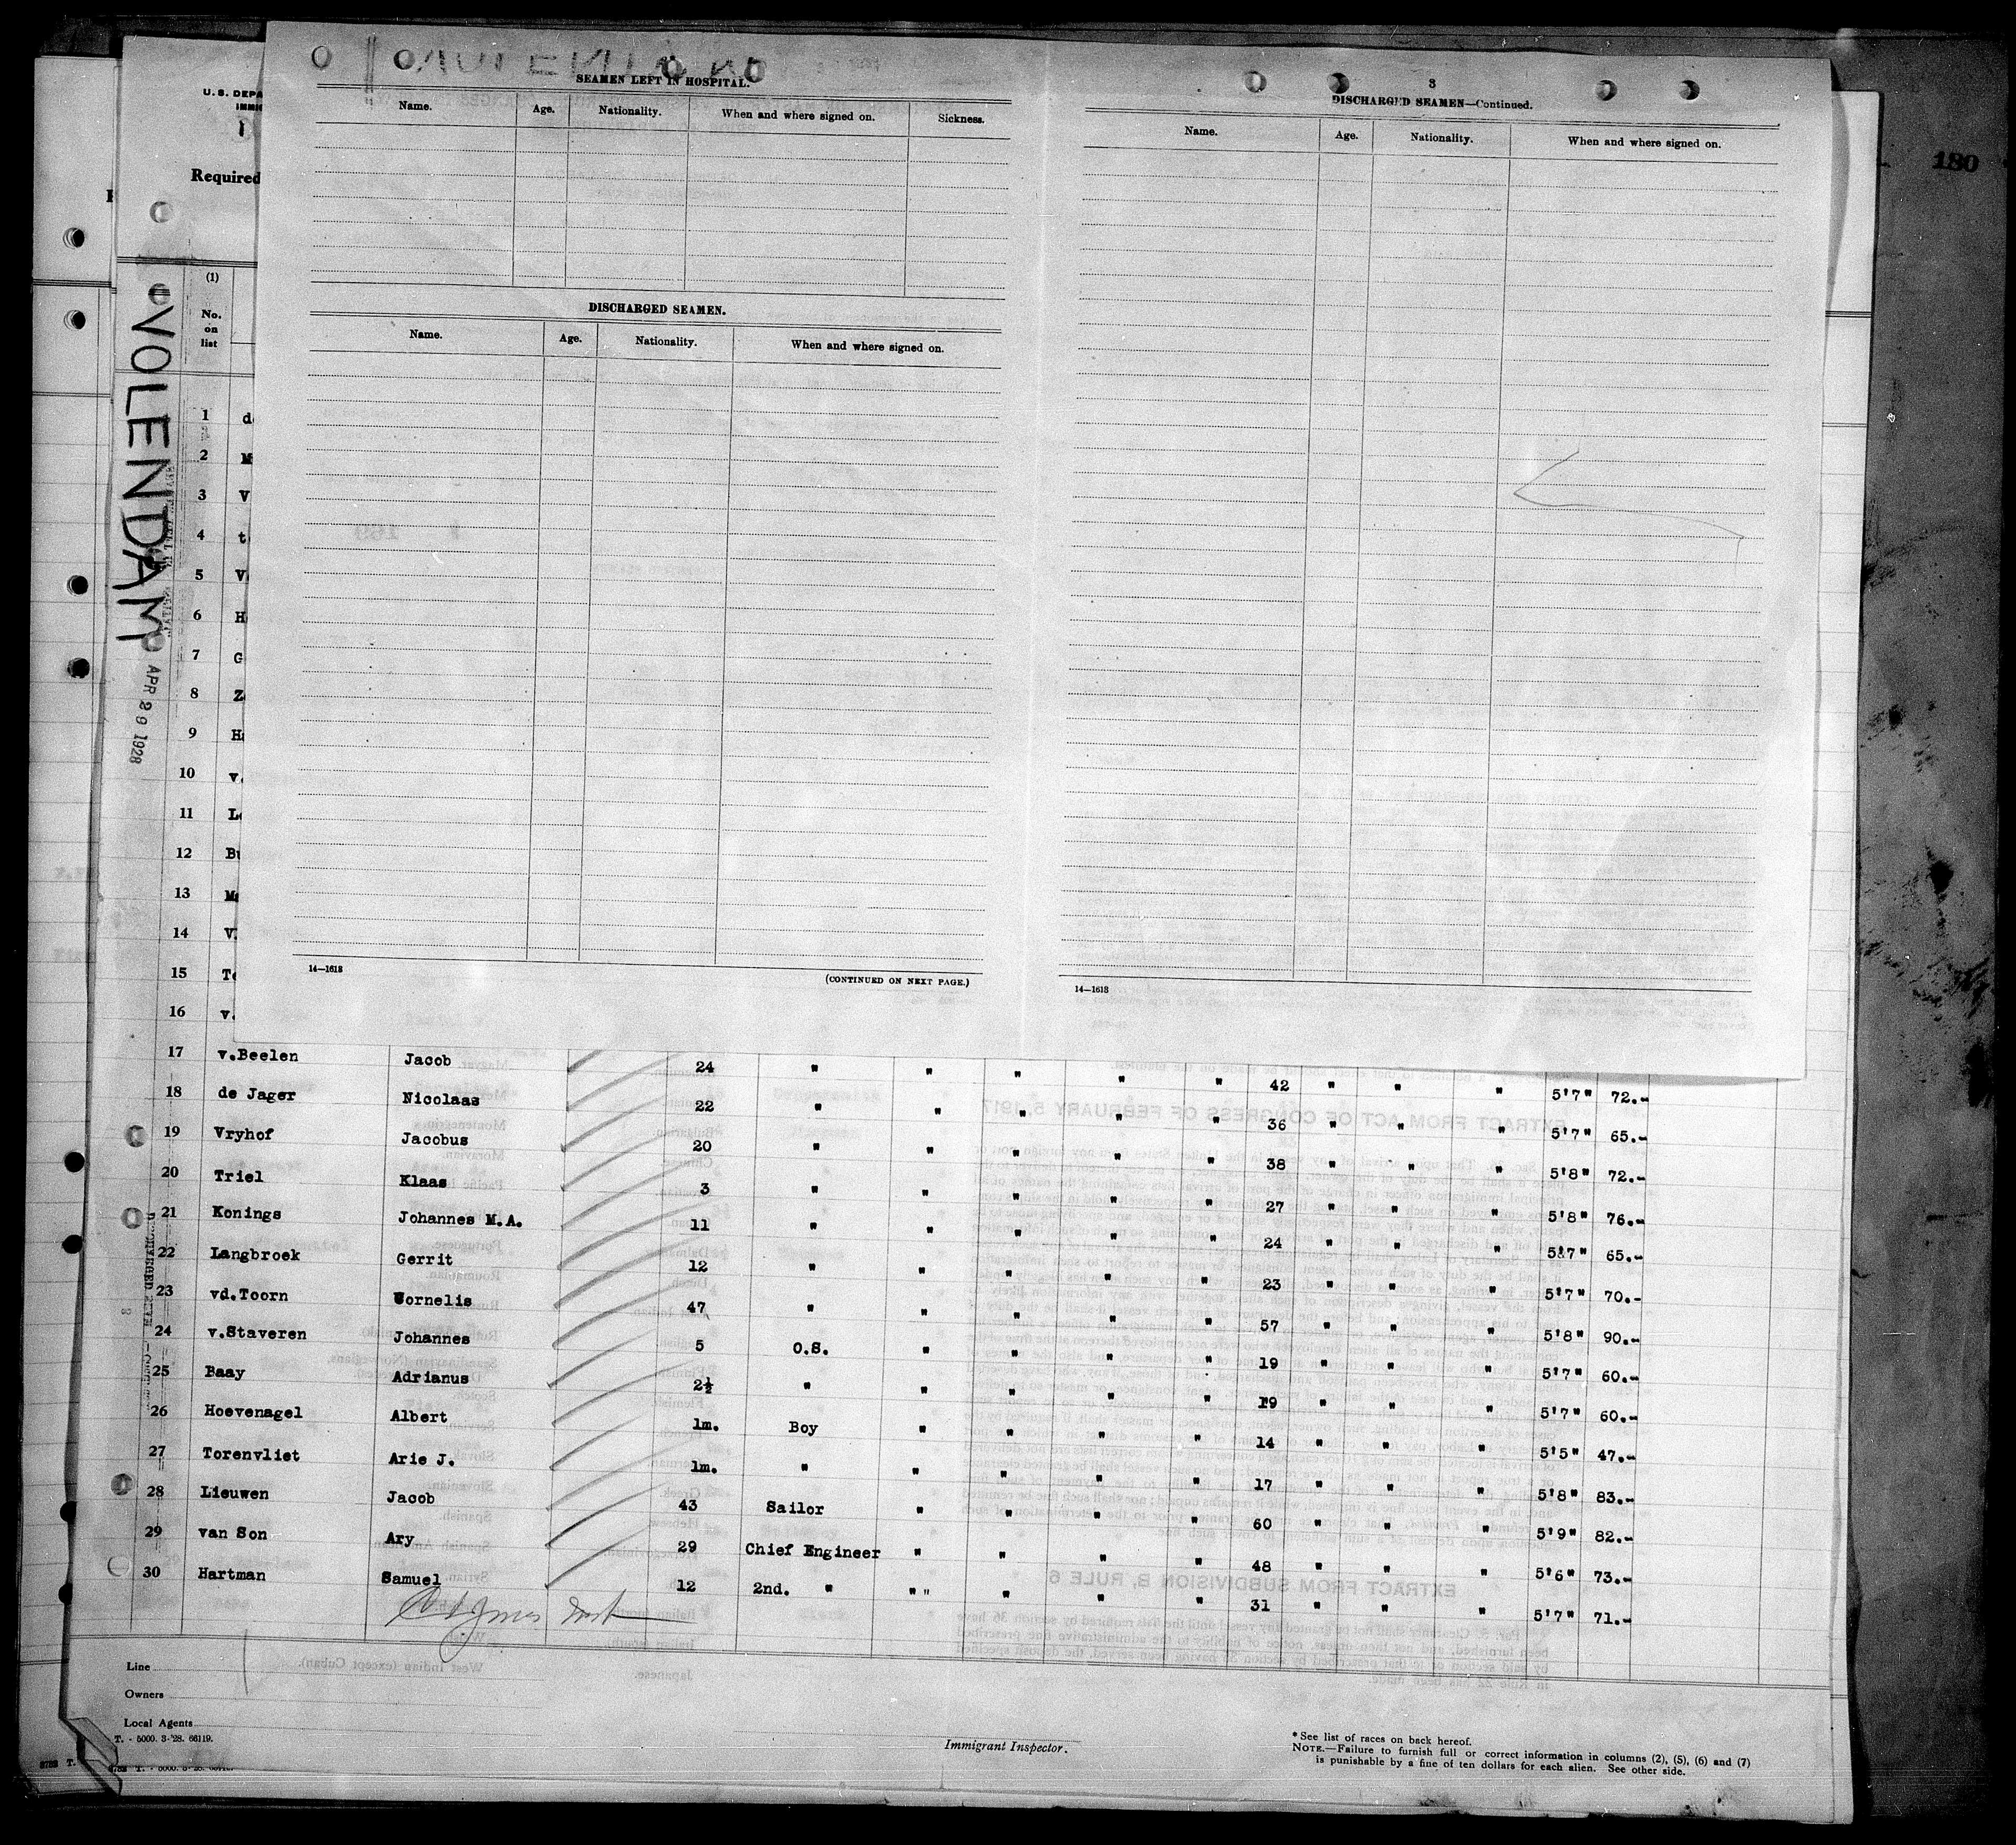 SEAMEN LEFT IN HOSPITAL.
Name. Age. Nationality. When and where signed on. Sickness.
DISCHARGED SEAMEN.
Name. Age. Nationality. When and where signed on.
14—1613
(CONTINUED ON NEXT PAGE.)
3
DISCHARGED SEAMEN—Continued.
Name. Age. Nationality. When and where signed on.
14—1613
180
U. S. DEPA
IMMI
Required
(1)
No.
on
list
VOLENDAM
APR 29 1928
1 d
2 M
3 V
4 t
5 V
6 H
7 G
8 Z
9 H
10 v.
11 L
12 Bu
13 M
14 V
15 Te
16 v.
17 v.Beelen Jacob 24 " " " " " 42 " " " 5'7" 72.-
18 de Jager Nicolaas 22 " " " " " 36 " " " 5'7" 65.-
19 Vryhof Jacobus 20 " " " " " 38 " " " 5'8" 72.-
20 Triel Klaas 3 " " " " " 27 " " " 5'8" 76.-
21 Konings Johannes M.A. 11 " " " " " 24 " " " 5'7" 65.-
22 Langbroek Gerrit 12 " " " " " 23 " " " 5'7" 70.-
23 vd.Toorn Cornelis 47 " " " " " 57 " " " 5'8" 90.-
24 v.Staveren Johannes 5 O.S. " " " " 19 " " " 5'7" 60.-
25 Baay Adrianus 2½ " " " " " 19 " " " 5'7" 60.-
26 Hoevenagel Albert 1m. Boy " " " " 14 " " " 5'5" 47.-
27 Torenvliet Arie J. 1m. " " " " " 17 " " " 5'8" 83.-
28 Lieuwen Jacob 43 Sailor " " " " 60 " " " 5'9" 82.-
29 van Son Ary 29 Chief Engineer " " " " 48 " " " 5'6" 73.-
30 Hartman Samuel 12 2nd. " " " " " " 31 " " " 5'7" 71.-
Line
Owners
Local Agents
T. - 5000. 3-'28. 66119.
Immigrant Inspector.
* See list of races on back hereof.
NOTE.—Failure to furnish full or correct information in columns (2), (5), (6) and (7)
is punishable by a fine of ten dollars for each alien. See other side.